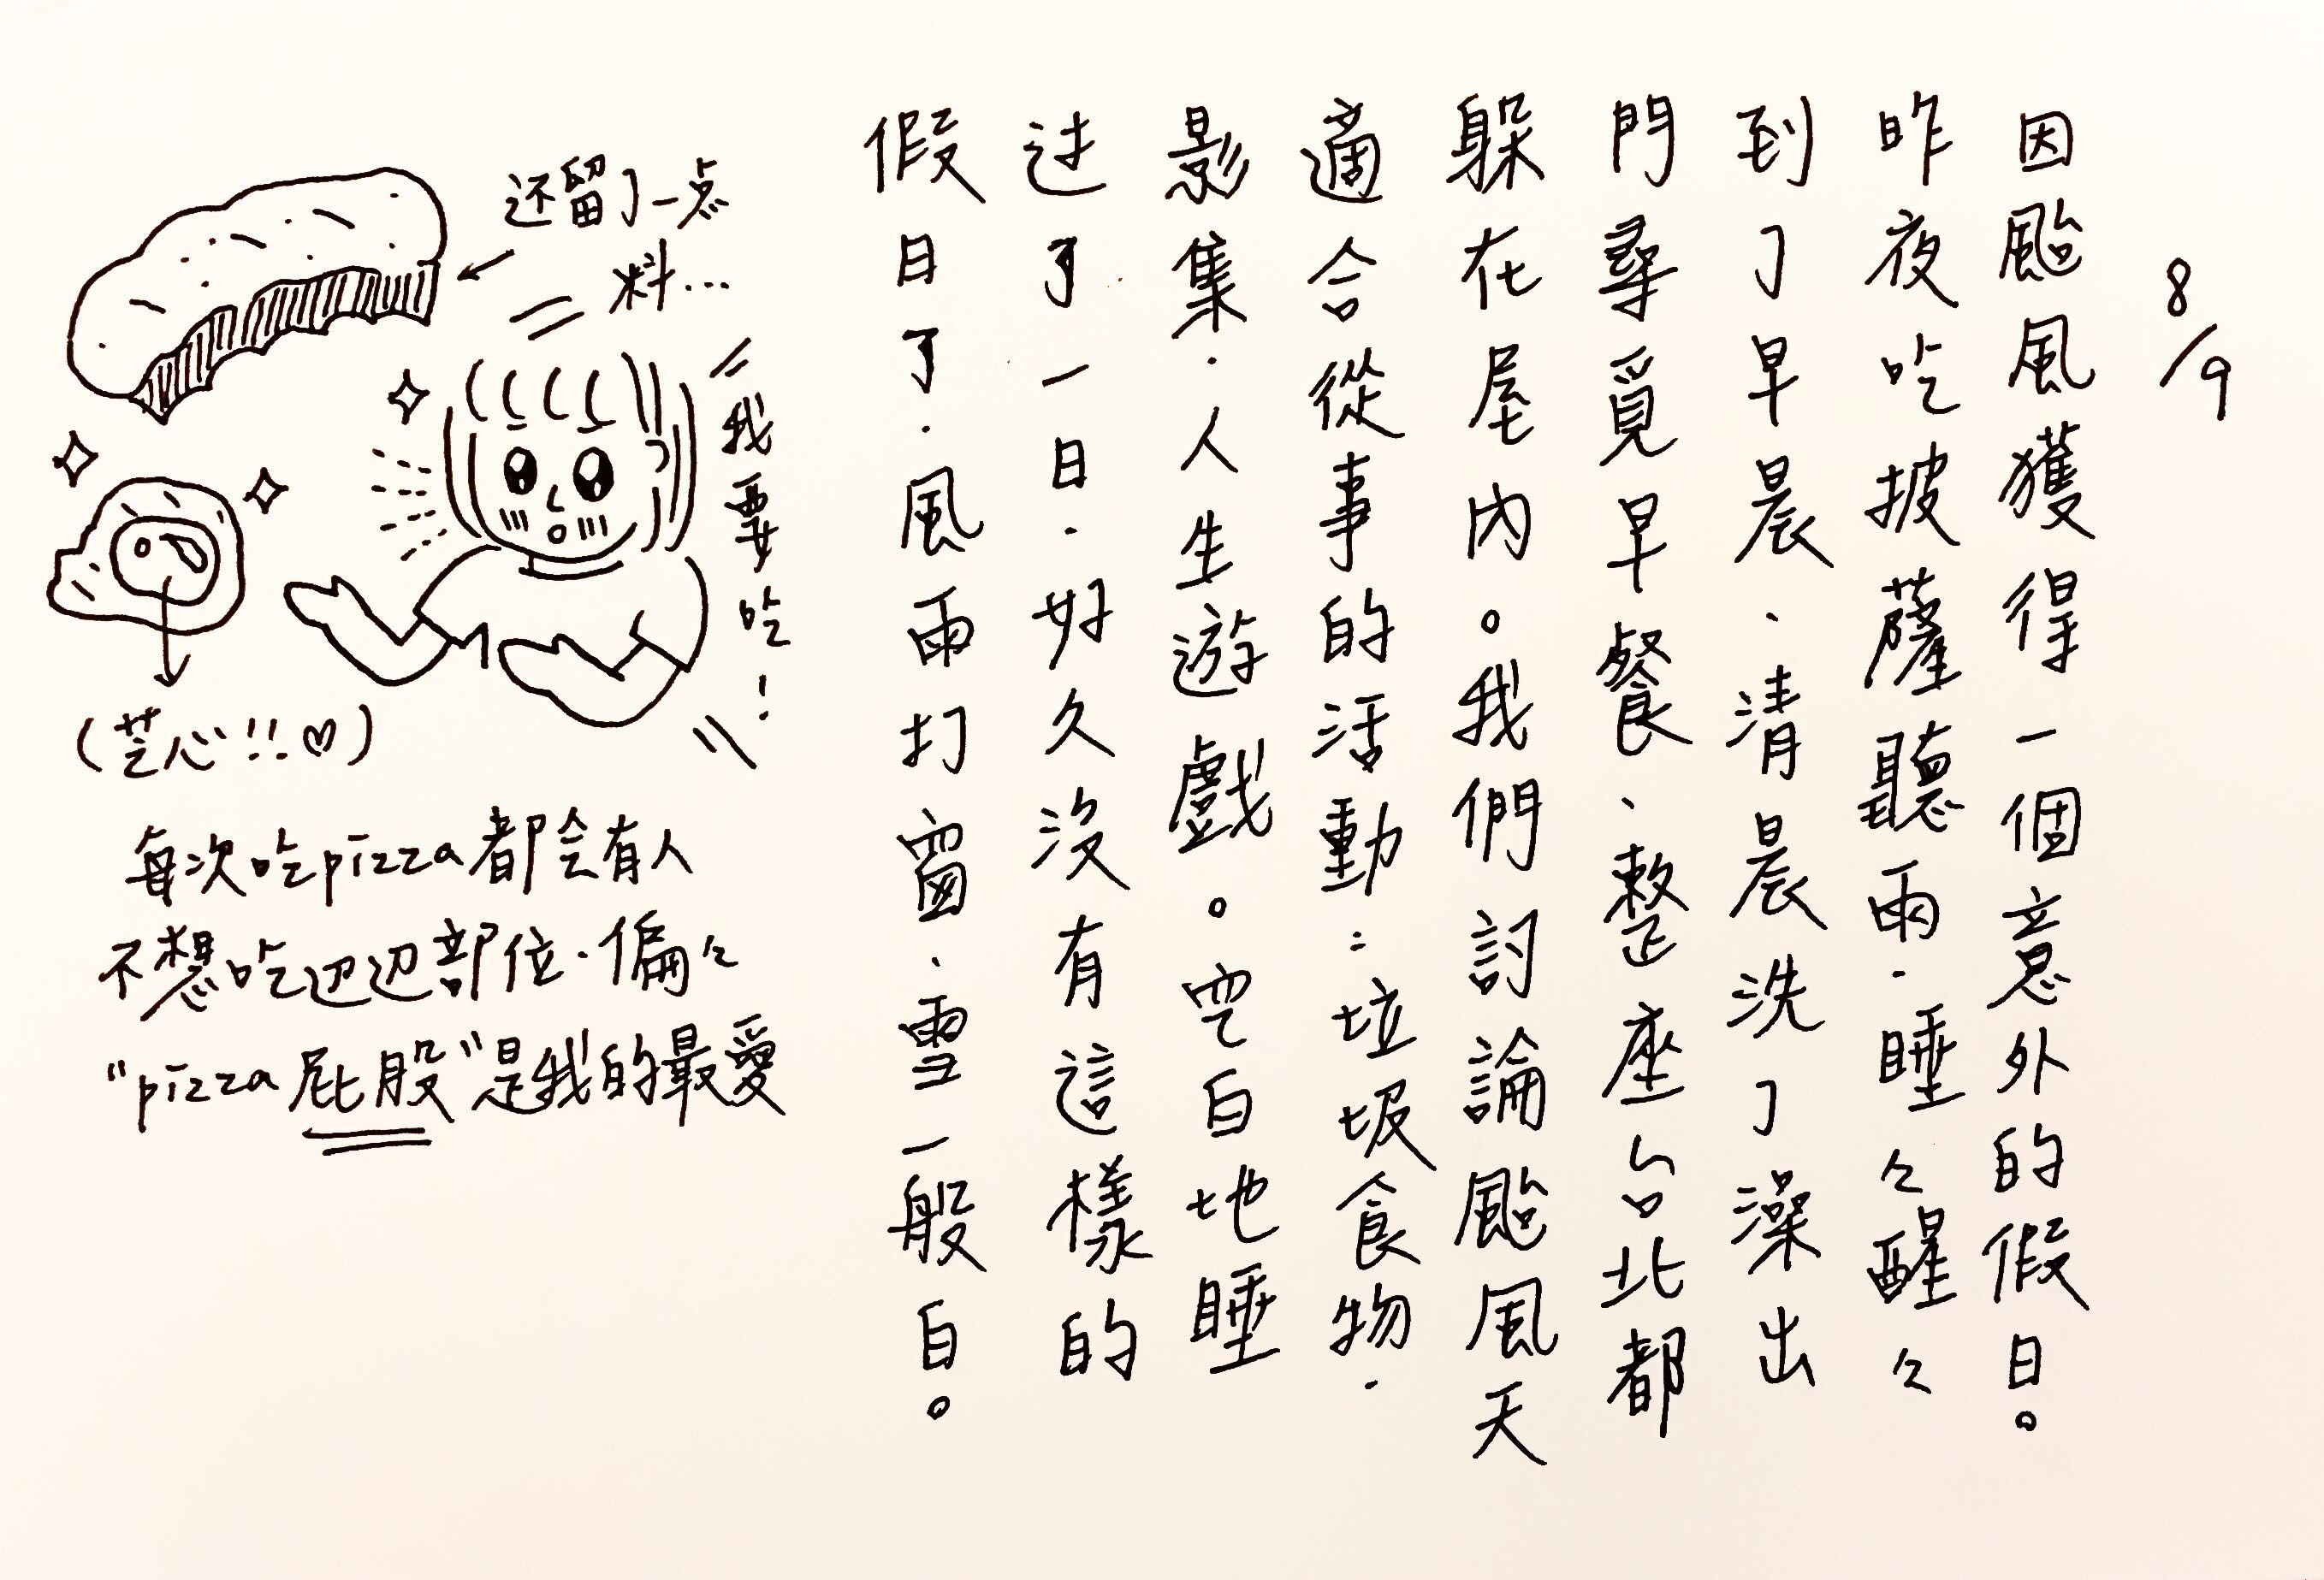 8/9
因颱風獲得一個意外的假日。
昨夜吃披薩聽雨、睡々醒々
到了早晨、清晨洗了澡出
門尋覓早餐、整座台北都
躲在屋內。我們討論颱風天
適合從事的活動：垃圾食物、
影集、人生遊戲。空白地睡
过了一日、好久沒有這樣的
假日了、風雨打窗、雪一般白。
还留了一点
料…
我要吃！
（芝心!!♡）
每次吃pizza都会有人
不想吃边边部位、偏々
“pizza屁股”是我的最愛